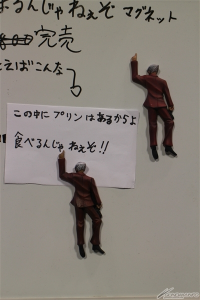 るんじゃねぇぞ マグネット
完売
とえばこんな
この中にプリンはあるからよ
食べるんじゃねぇぞ!!